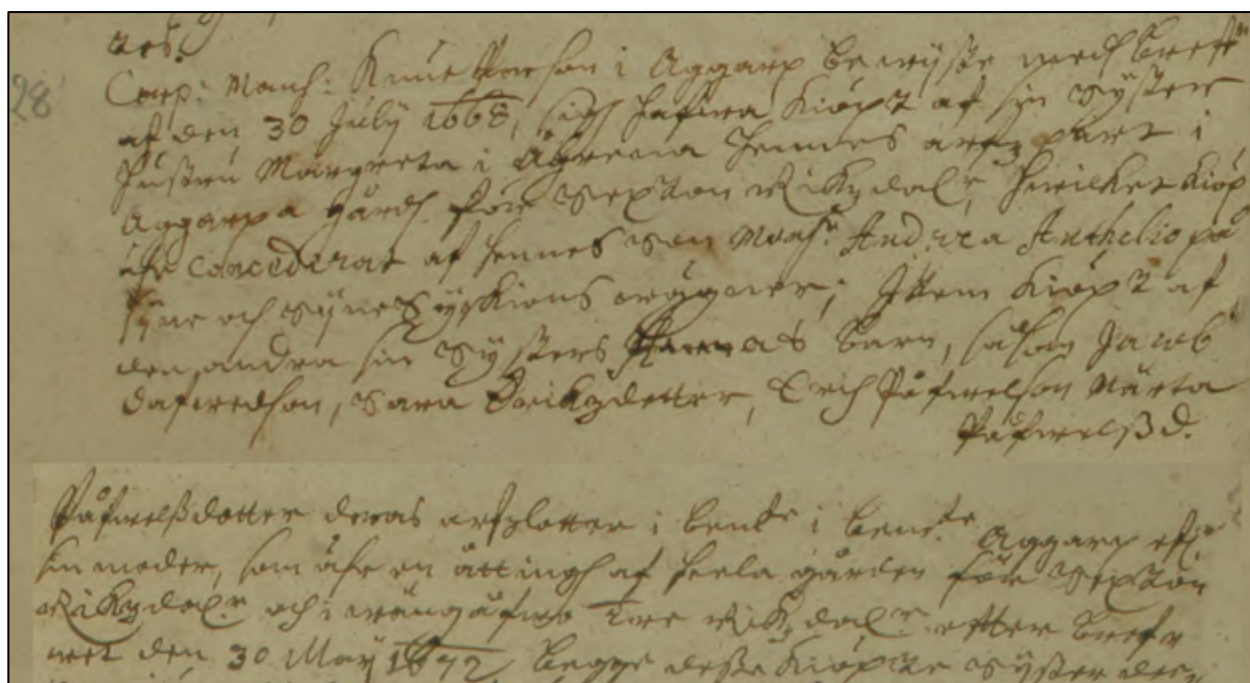 ars.
28
Corp: Mons: Knut Person i Aggarp bewyste medh breff
af den 30 July 1668, sigh hafwa kiöpt af sin syster
hustru Margreta i Ågrena hennes arfz part i
Aggarpa gårdh för Sexton Rikzdalr, hwilket kiöp
ähr concederat af hennes son Monsr. Andrea Anthelio på
syne och syne Syskions wägner; Item kiöpt af
den andra sin Systers barn, såsom Jacob
Dafwedson, Sara Erikzdotter, Erich Påfwelson Märta
Påfwelßd.
Påfwelßdotter deras arfzlotter i benTe Aggarp eftr
sin moder, som ähr en åttingh af heela gården för Sexton
Rikzdalr och i wängåfwo Tre Rikzdalr efter brefw
net den 30 May 1672, begge desse kiöpte Syster der